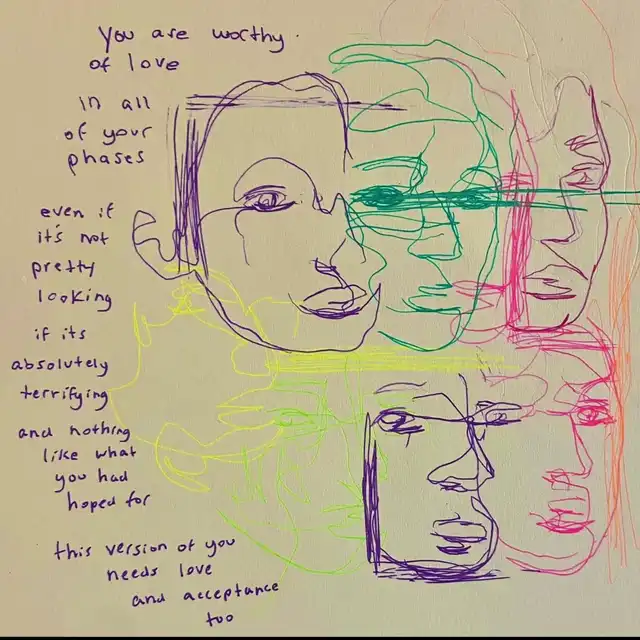 You are worthy.
of love
in all
of your
phases
even if
it's not
pretty
looking
if its
absolutely
terrifying
and nothing
like what
you had
hoped for
this version of you
needs love
and acceptance
too